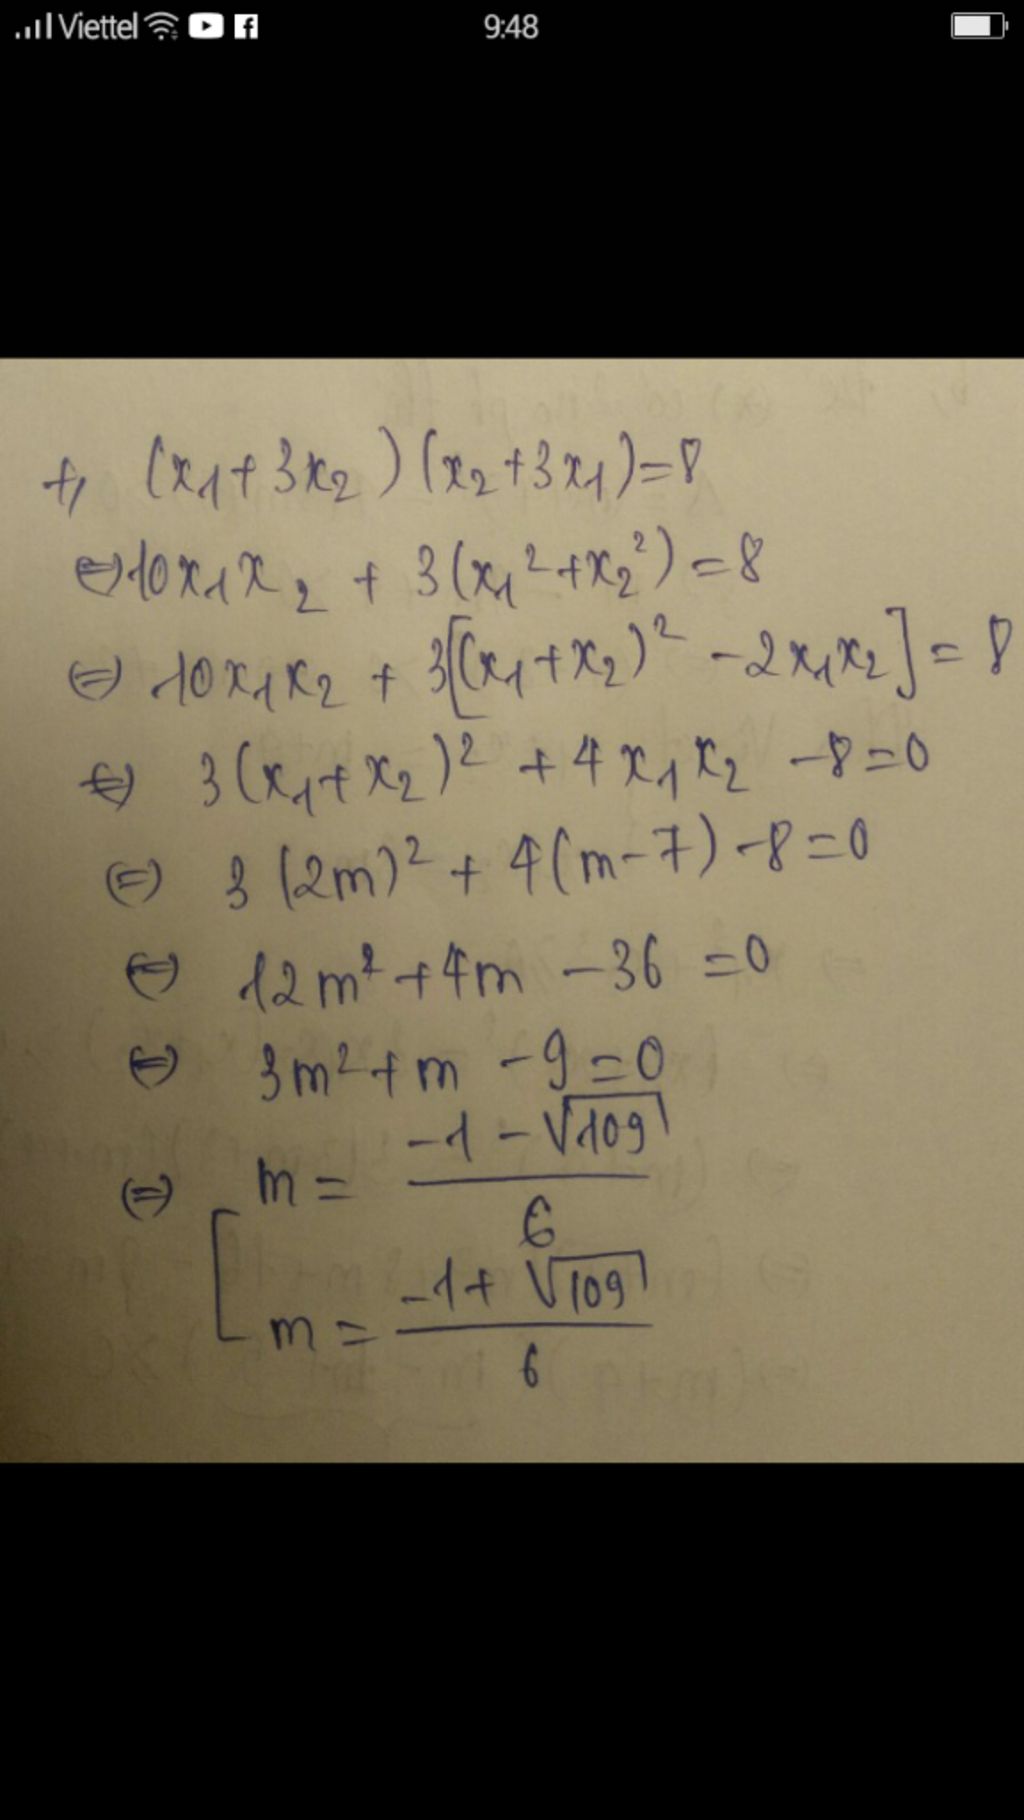 Viettel 9:48
+, (x₁+3x₂)(x₂+3x₁)=8
⇔ 10x₁x₂ + 3(x₁²+x₂²)=8
⇔ 10x₁x₂ + 3[(x₁+x₂)² -2x₁x₂] = 8
⇔ 3(x₁+x₂)² +4x₁x₂ -8=0
⇔ 3(2m)² + 4(m-7) -8=0
⇔ 12m²+4m -36 =0
⇔ 3m²+m -9=0
⇔ [ m = (-1 - √109)/6
m = (-1+ √109)/6